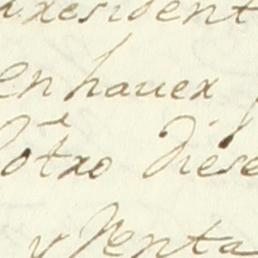 president
en hauer
otro diese
y Venta